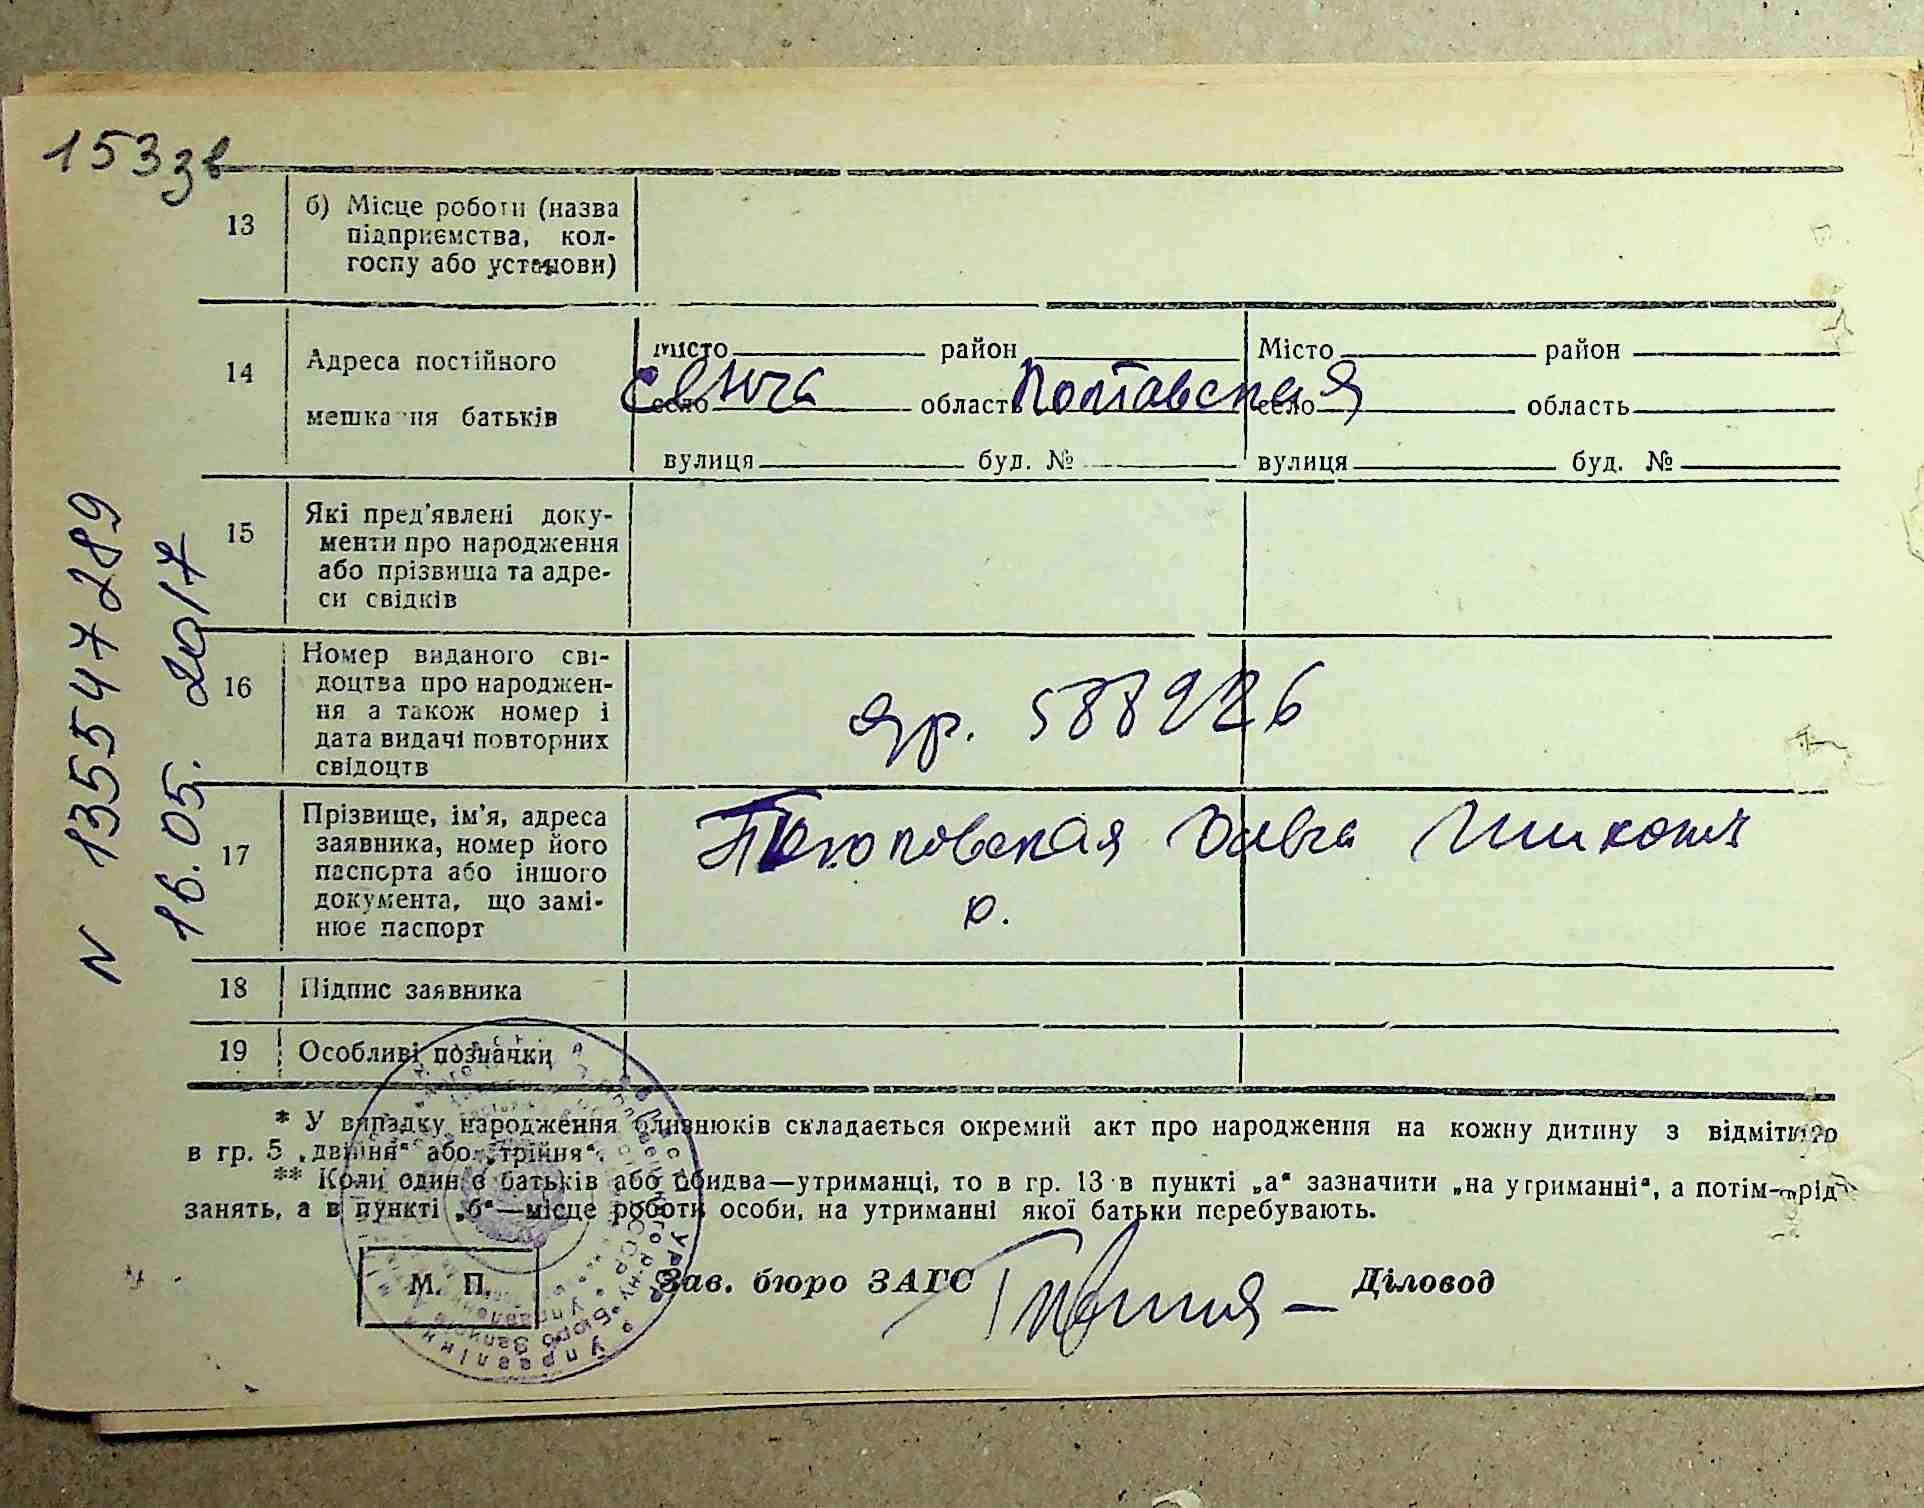 153 зв
13 б) Місце роботи (назва
підприємства, кол-
госпу або установи)
14 Адреса постійного
мешкання батьків
місто район Місто район
село область Полтавская село область
вулиця буд. № вулиця буд. №
15 Які пред'явлені доку-
менти про народження
або прізвища та адре-
си свідків
16 Номер виданого сві-
доцтва про народжен-
ня а також номер і
дата видачі повторних
свідоцтв
яр. 588926
17 Прізвище, ім'я, адреса
заявника, номер його
паспорта або іншого
документа, що замі-
нює паспорт
р.
18 Підпис заявника
19 Особливі позначки
N 135547289
16.05. 2017
* У випадку народження близнюків складається окремий акт про народження на кожну дитину з відміткою
в гр. 5 „двійня“ або „трійня“.
** Коли один з батьків або обидва—утриманці, то в гр. 13 в пункті „а“ зазначити „на утриманні“, а потім—рід
занять, а в пункті „б“—місце роботи особи, на утриманні якої батьки перебувають.
М. П. Зав. бюро ЗАГС Діловод